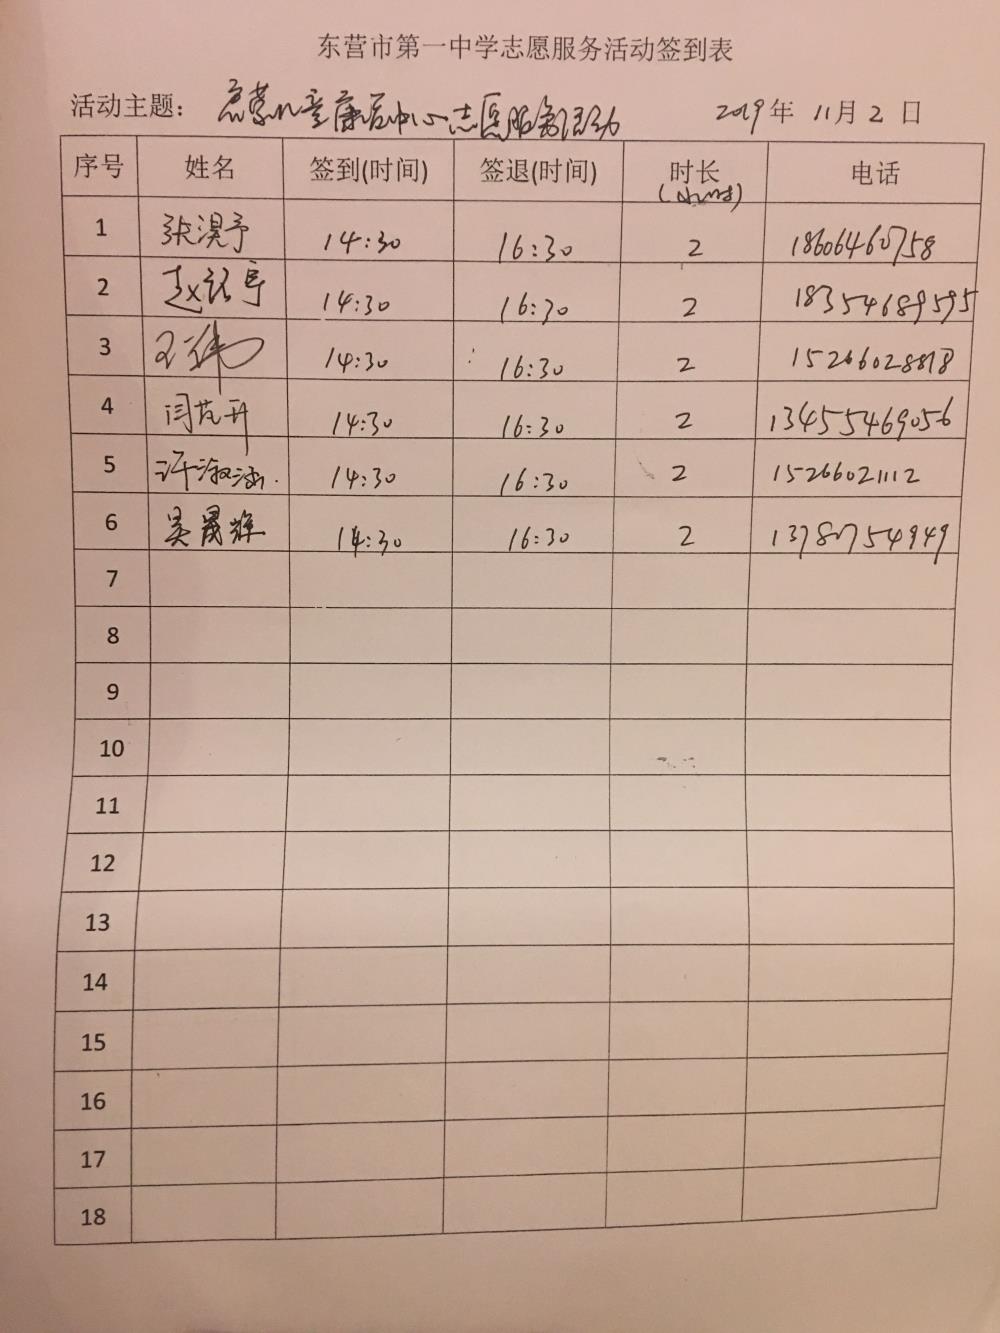 东营市第一中学志愿服务活动签到表
活动主题： 启蒙儿童康复中心志愿服务活动 2019年 11月 2 日
序号 姓名 签到(时间) 签退(时间) 时长(小时) 电话
1 张淏予 14:30 16:30 2 18606460758
2 赵 14:30 16:30 2 18354689595
3 王伟 14:30 16:30 2 15266028818
4 闫 14:30 16:30 2 13455469056
5 许淑涵 14:30 16:30 2 15266021112
6 吴晟辉 14:30 16:30 2 13780754949
7
8
9
10
11
12
13
14
15
16
17
18